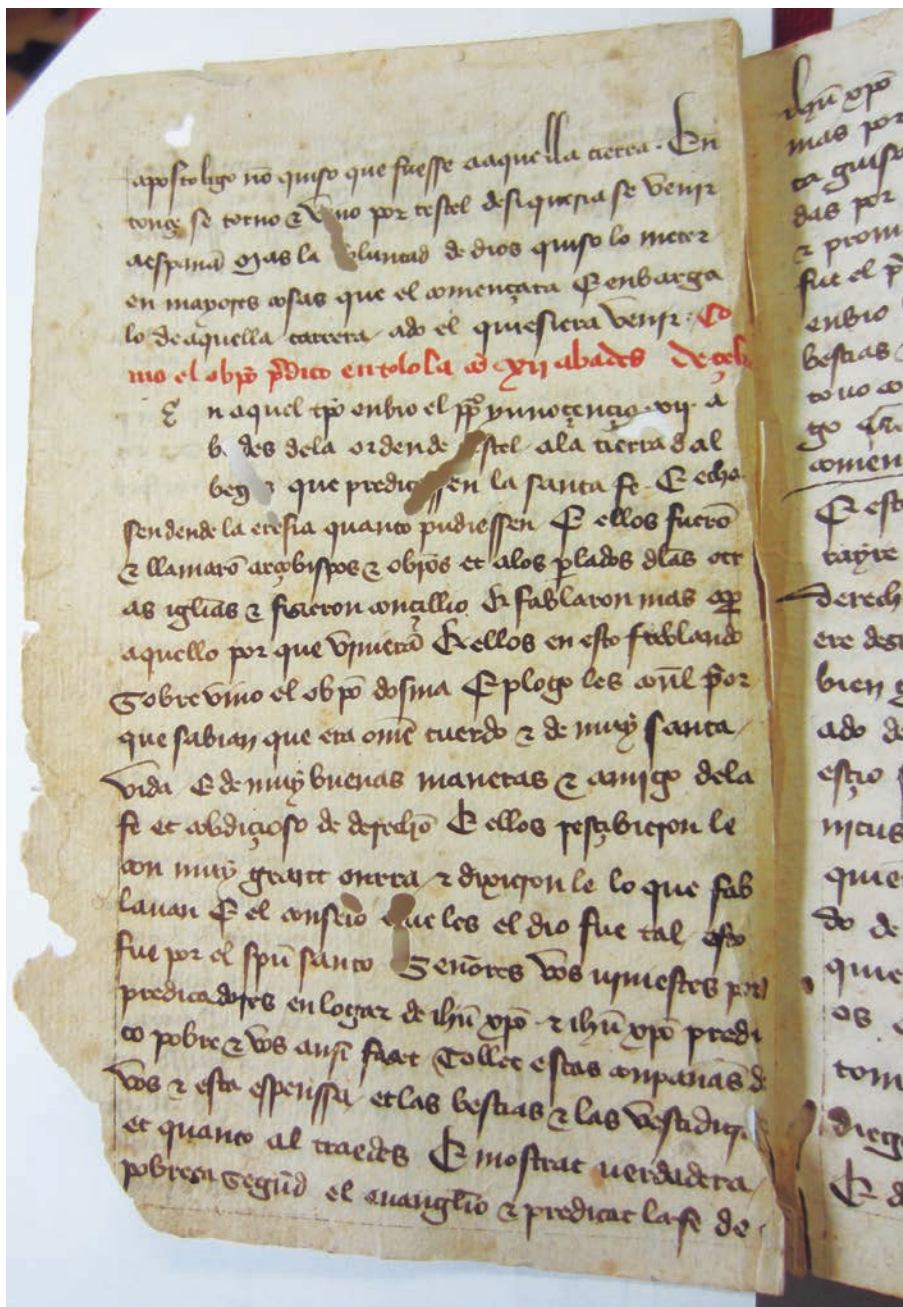 apostoligo nõ quiso que fuesse aaquella tierra. En
tonçe se torno & vino por çestel desi queria se venir
aespanã Mas la voluntad de dios quiso lo meter
en mayores cosas que el començara E enbarga
lo de aquella carrera ado el quiesiera venir: Co
mo el obpõ p̃dico en tolosa cõ xii abades de çeles
E n aquel tp̃o enbio el pp̃ ynnoçençio xii. a
bades dela orden de çestel ala tierra d al
beges que predicassen la santa fe. E echa
sen dende la eresia quanto pudiessen E ellos fuerõ
& llamarõ arçobispos & obpõs et alos p̱lados dlas otr
as iglĩas & fisieron conçillio E fablaron mas por
aquello por que vinierã E ellos en esto fablando
Sobrevino el obpõ dosma E plogo les con̄l por
que sabian que era omẽ cuerdo & de muy santa
vida E de muy buenas maneras & amigo dela
fe et cobdiçioso de derechõ E ellos resçibieron le
con muy grant onrra & dixieron le lo que fab
lavan E el conseio que les el dio fue tal esto
fue por el spũ santo Senõres vos viniestes por
predicadores en logar de ihũ xpõ & ihũ xpõ predi
co pobre & vos ansi faset Tollet estas conpanãs de
vos & esta espenssa et las bestias & las vestiduras
et quanto al traedes E mostrat verdadera
pobresa segũd el euanglĩo & predicat la fe de
ihũ xpõ
mas por
ta guisa
das por
fue el
enbio
bestias
go
comen
E est
derech
ere
bien g
ado de
do de
que
es
tom
dieg
E d